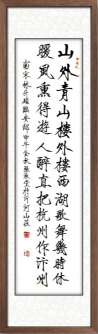 山外青山樓外樓西湖歌舞幾時休
暖風熏得遊人醉直把杭州作汴州
林升題臨安邸甲午金秋